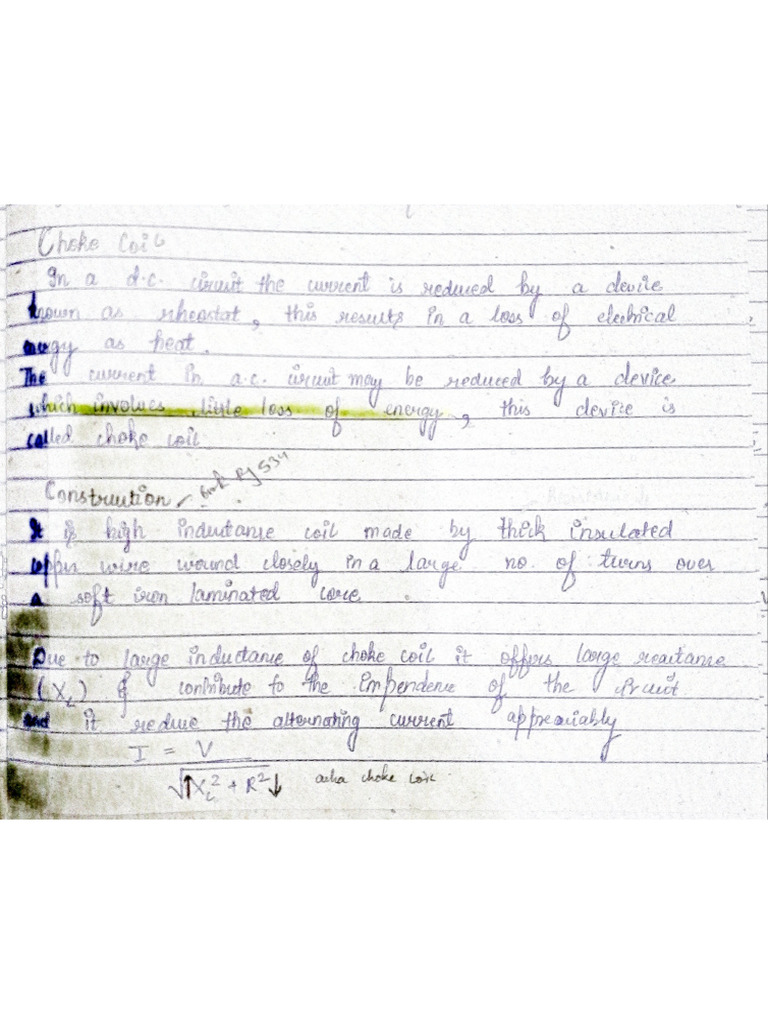 Choke Coil
In a d.c. circuit the current is reduced by a device
known as rheostat, this results in a loss of electrical
energy as heat.
The current in a.c. circuit may be reduced by a device
which involves little loss of energy, this device is
called choke coil
Construution - book Pg 534
It is high inductance coil made by thick insulated
copper wire wound closely in a large no. of turns over
a soft iron laminated core.
Due to large inductance of choke coil it offers large reactance
(X_L) & contribute to the Impendence of the circuit
and it reduce the alternating current appreciably
I = V
√↑X_L² + R²↓ acha choke coil